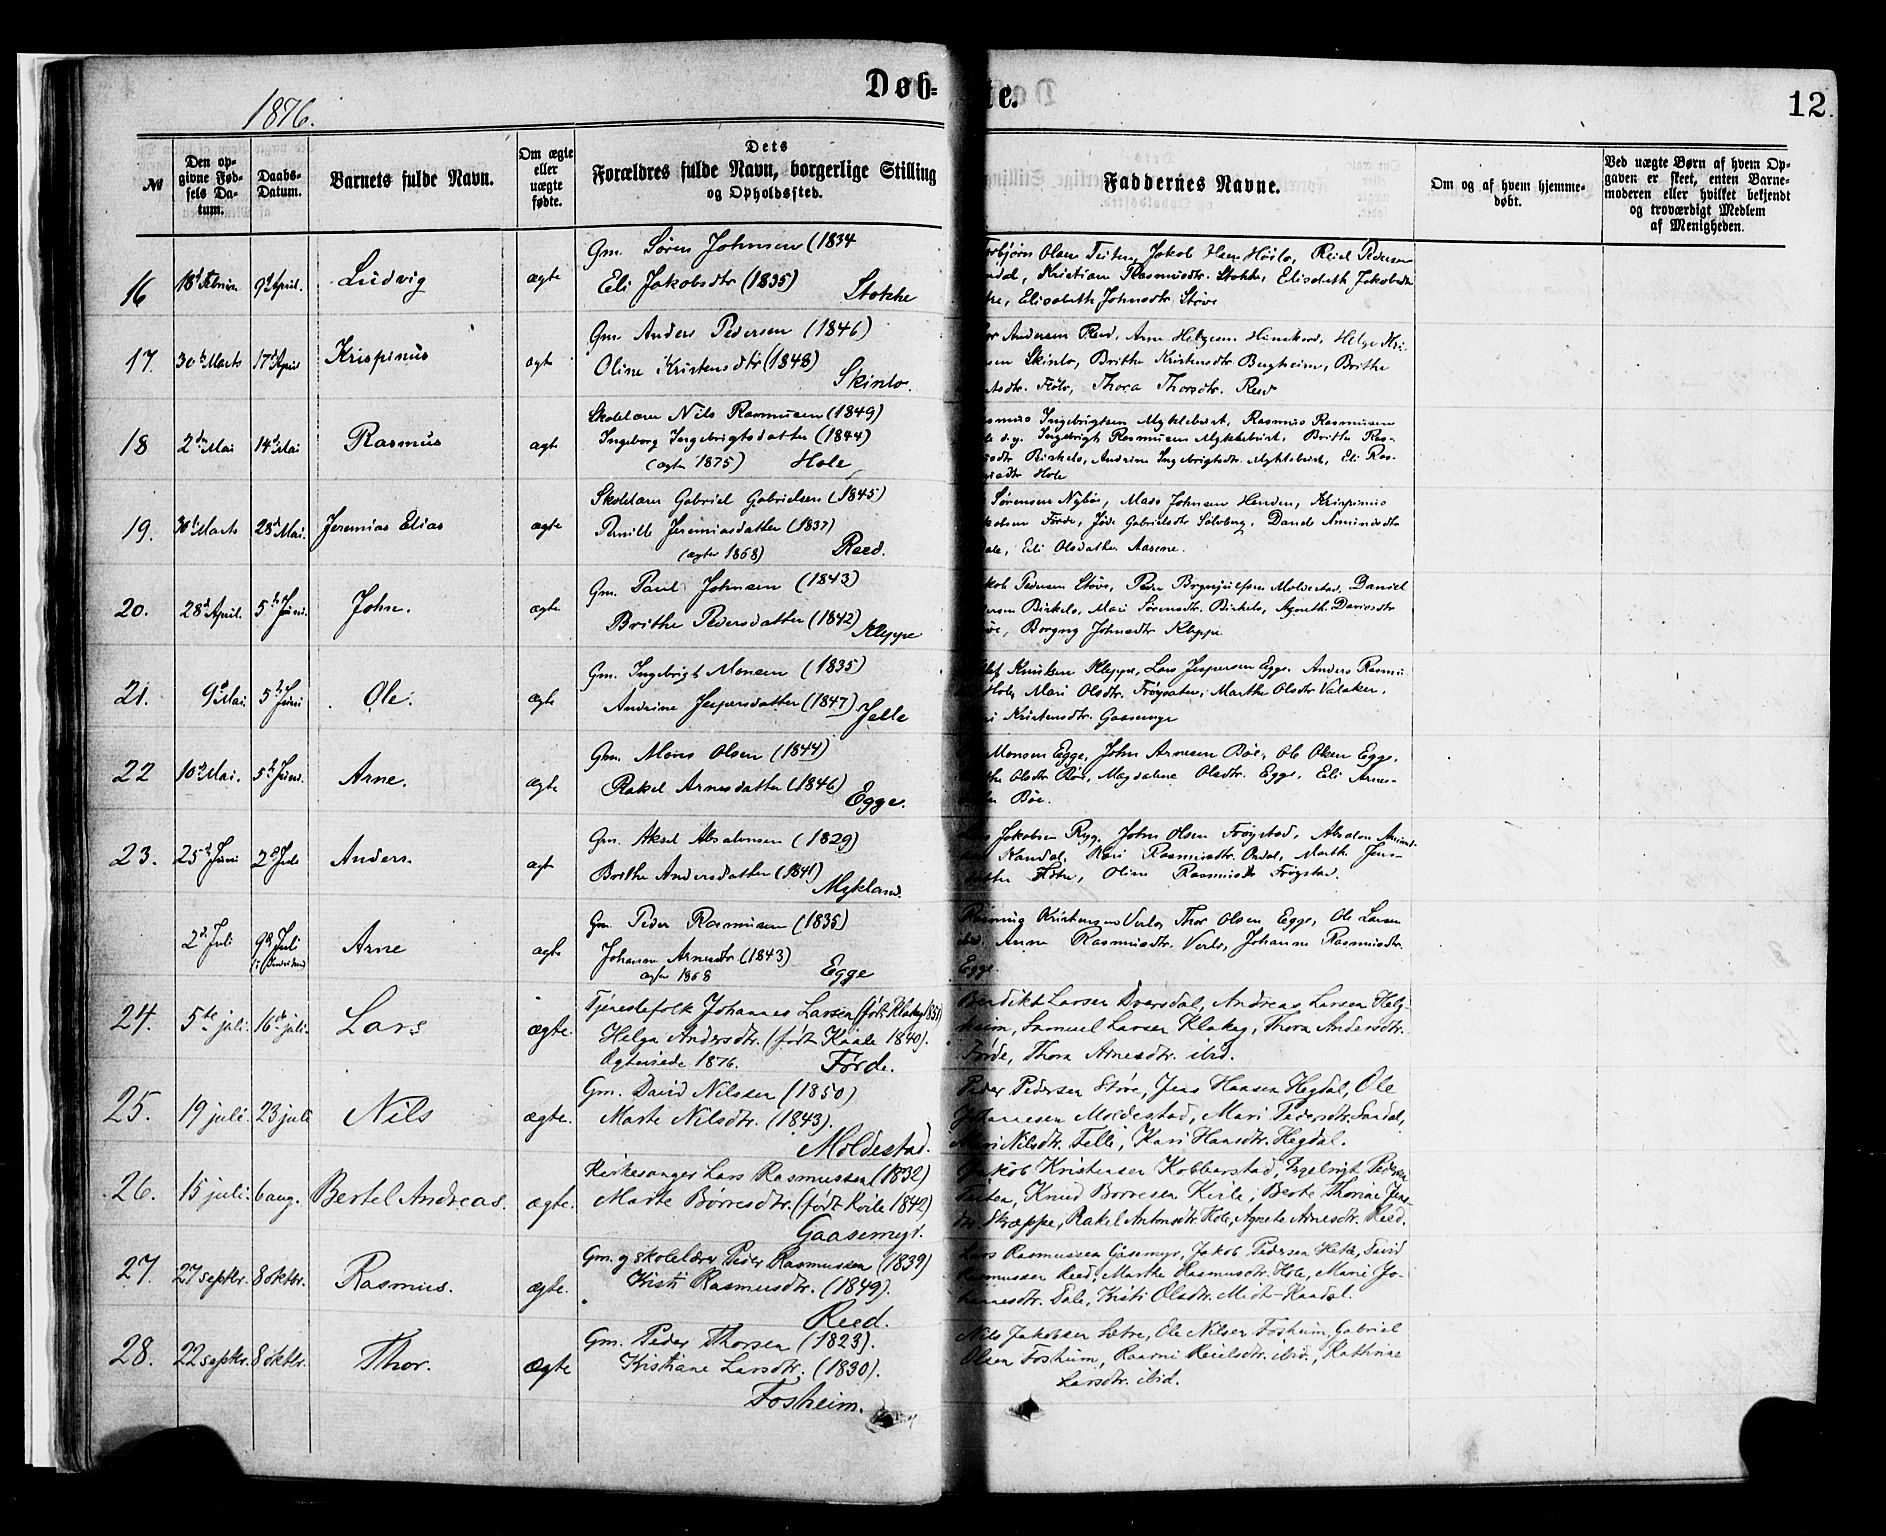 1876.
Døb-
te.
12.
№
Den op-
givne Fød-
sels Da-
tum.
Daabs-
Datum.
Barnets fulde Navn.
Om ægte
eller
uægte
fødte.
Dets
Forældres fulde Navn, borgerlige Stilling
og Opholdssted.
Faddernes Navne.
Om og af hvem hjemme-
døbt.
Ved uægte Børn af hvem Op-
gaven er skeet, enten Barne-
moderen eller hvilket bekjendt
og troværdigt Medlem
af Menigheden.
16 18d Februar 9d April. Ludvig ægte
Gm. Søren Johnsen (1834
Eli Jakobsdtr (1835)
Stokke
Olsen Teiten, Jakob Hansen Reiel Pedersen
Kristiane Rasmusdtr. Stokke, Elisabeth Jakobsdtr
Elisabeth Johnsdtr. Støve
17. 30te Marts 17d April Krispinus ægte
Gm. Anders Pedersen (1846)
Oline Kristensdtr (1848)
Skinlo.
Andersen Reed, Arne Helgesen Hunskord, Helge Kri-
Skinlo, Brithe Kristensdtr Bergheim, Brithe
Thora Thorsdtr. Reed
18 2den Mai 14de Mai Rasmus ægte
Skolelærer Nils Rasmusen (1849)
Ingeborg Ingebrigtsdatter (1844)
(ægtev 1875) Hole
Ingebrigtsen Myklebust, Rasmus Rasmusen
d.y. Ingebrigt Rasmusen Myklebust, Brithe Ras-
Birkelo, Andrine Ingebrigtsdtr. Myklebust, Eli Ras-
Hole
19. 30te Marts 28de Mai. Jeremias Elias ægte
Skolelærer Gabriel Gabrielsen (1845)
Pernille Jeremiasdatter (1837)
(ægtev 1868) Reed.
Sørensen Nybøe, Mads Johnsen Henden, Krispinus
Førde, Gabrielsdtr Sølvberg,
Eli Olsdatter Aasene.
20. 28d April. 5te Juni. John. ægte
Gm. Paul Johnsen (1843)
Brithe Pedersdatter (1842) Kleppe
Pedersen Støve, Peder Brynjulfsen Moldestad, Daniel
Birkelo, Mari Sørensdtr. Birkelo, Agnethe Danielsdtr
Borgny Johnsdtr Kleppe
21. 9d Mai. 5te Juni Ole. ægte
Gm. Ingebrigt Monsen (1835)
Andrine Jespersdatter (1847) Felle
Knudsen Kleppe, Lars Jespersen Egge. Anders Rasmu-
Hole, Mari Olsdtr. Frøysater, Marthe Olsdtr Valaker,
Kristensdtr. Gaasemyr
22 10d Mai. 5te Juni. Arne. ægte
Gm. Mons Olsen (1844)
Rakel Arnesdatter (1846)
Egge.
Monsen Egge, John Arnesen Bøe, Ole Olsen Egge,
Olsdtr Bøe, Magdalene Olsdtr. Egge, Eli Arnes-
Bøe.
23. 25te Juni 2d Juli Anders. ægte
Gm. Aksel Absalonsen (1829)
Brithe Andersdatter (1841)
Mykland.
Jakobsen Ryg, John Olsen Frøystad, Absalon
Kandal, Kari Rasmusdtr. Marthe Jens-
Oline Rasmusdtr Frøystad.
2d Juli 9d Juli Arne ægte
Gm. Peder Rasmusen (1835)
Johanne Arnesdtr (1843)
ægtev 1868 Egge
Kristensen Verlo, Thor Olsen Egge, Ole Larsen
Anne Rasmusdtr. Verlo, Johanne Rasmusdtr.
Egge.
24. 5te juli. 16de juli. Lars ægte.
Tjenestefolk Johannes Larsen (født Klakeg 1851)
Helga Andersdtr. (født Kaale 1840).
Ægteviede 1876. Førde.
Bendikt Larsen Dvergsdal, Andreas Larsen Helg-
heim, Samuel Larsen Klakeg, Thora Andersdtr.
Førde, Thora Arnesdtr. ibid.
25. 19 juli. 23 juli Nils ægte.
Gm. David Nilssen (1850)
Marte Nilsdtr. (1843).
Moldestad.
Peder Pedersen Støve, Jens Hansen Hegdal, Ole
Johannesen Moldestad, Mari Pedersdtr. Sandal,
Mari Nilsdtr. Felle, Kari Hansdtr. Hegdal.
26. 15 juli. 6 aug. Bertel Andreas. ægte.
Kirkesanger Lars Rasmussen (1832)
Marte Børresdtr. (født Kvile 1842)
Gaasemyr.
Jakob Kristensen Kobberstad, Ingebrigt Pedersen
Teiten, Knud Børresen Kvile, Berte Thorine Jens-
dtr. Skreppe, Rakel Antonsdtr. Hole, Agnete Arnesdtr. Reed.
27. 27 septbr. 8 oktbr. Rasmus. ægte.
Gm. og skolelærer Peder Rasmussen (1839)
Kristi Rasmusdtr. (1849).
Reed.
Lars Rasmussen Gåsemyr, Jakob Pedersen Hetle, David
Rasmussen Reed, Marthe Rasmusdtr. Hole, Marie Jo-
hannesdtr. Dale, Kristi Olsdtr. Midt-Kandal.
28. 22 septbr. 8 oktbr. Thor. ægte
Gm. Peder Thorsen (1823).
Kristiane Larsdtr. (1830).
Fosheim.
Nils Jakobsen Sætre, Ole Nilsen Fosheim, Gabriel
Olsen Fosheim, Reielsdtr. ibid., Kathrine
Larsdtr. ibid.